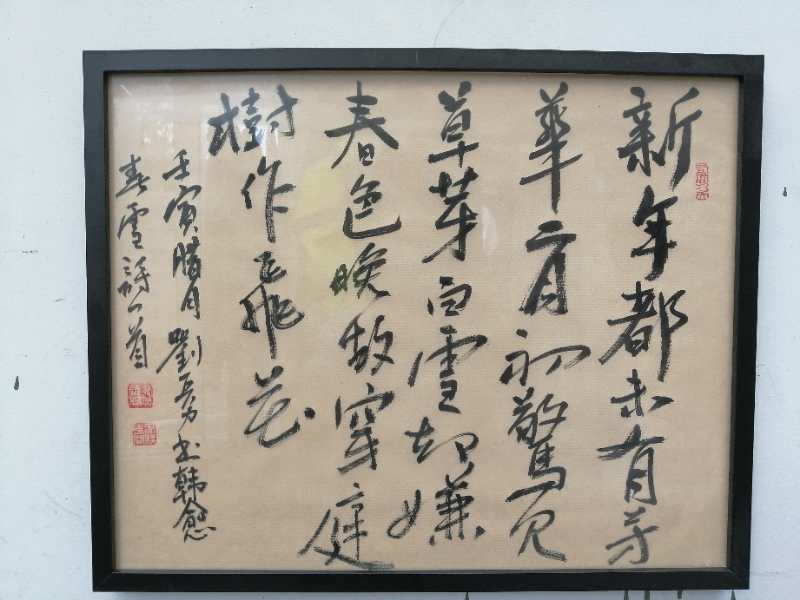 新年都未有芳
華二月初驚見
草芽白雪却嫌
春色晚故穿庭
樹作飛花
壬寅腊月劉勇书韩愈
春雪詩一首